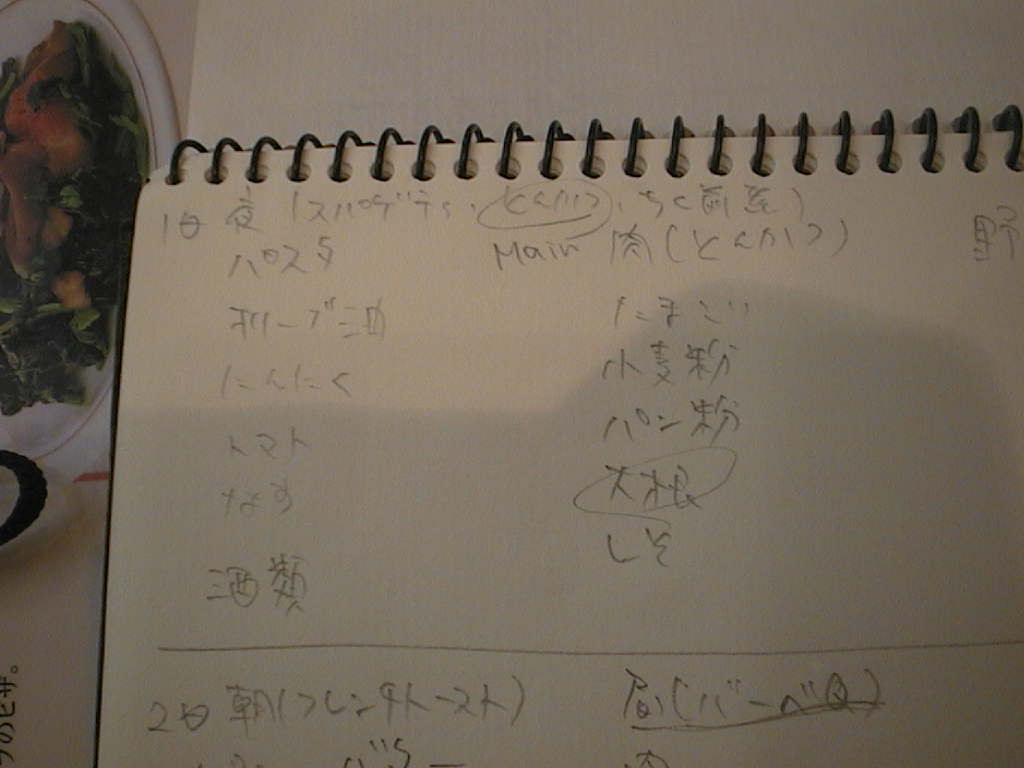 1日 夜(スパゲティ、とんかつ、ちく前煮)
パスタ
Main 肉(とんかつ)
野
オリーブ油
たまご
にんにく
小麦粉
トマト
パン粉
なす
大根
酒類
しそ
2日 朝(フレンチトースト)
昼(バーベQ)
肉
のピザ。